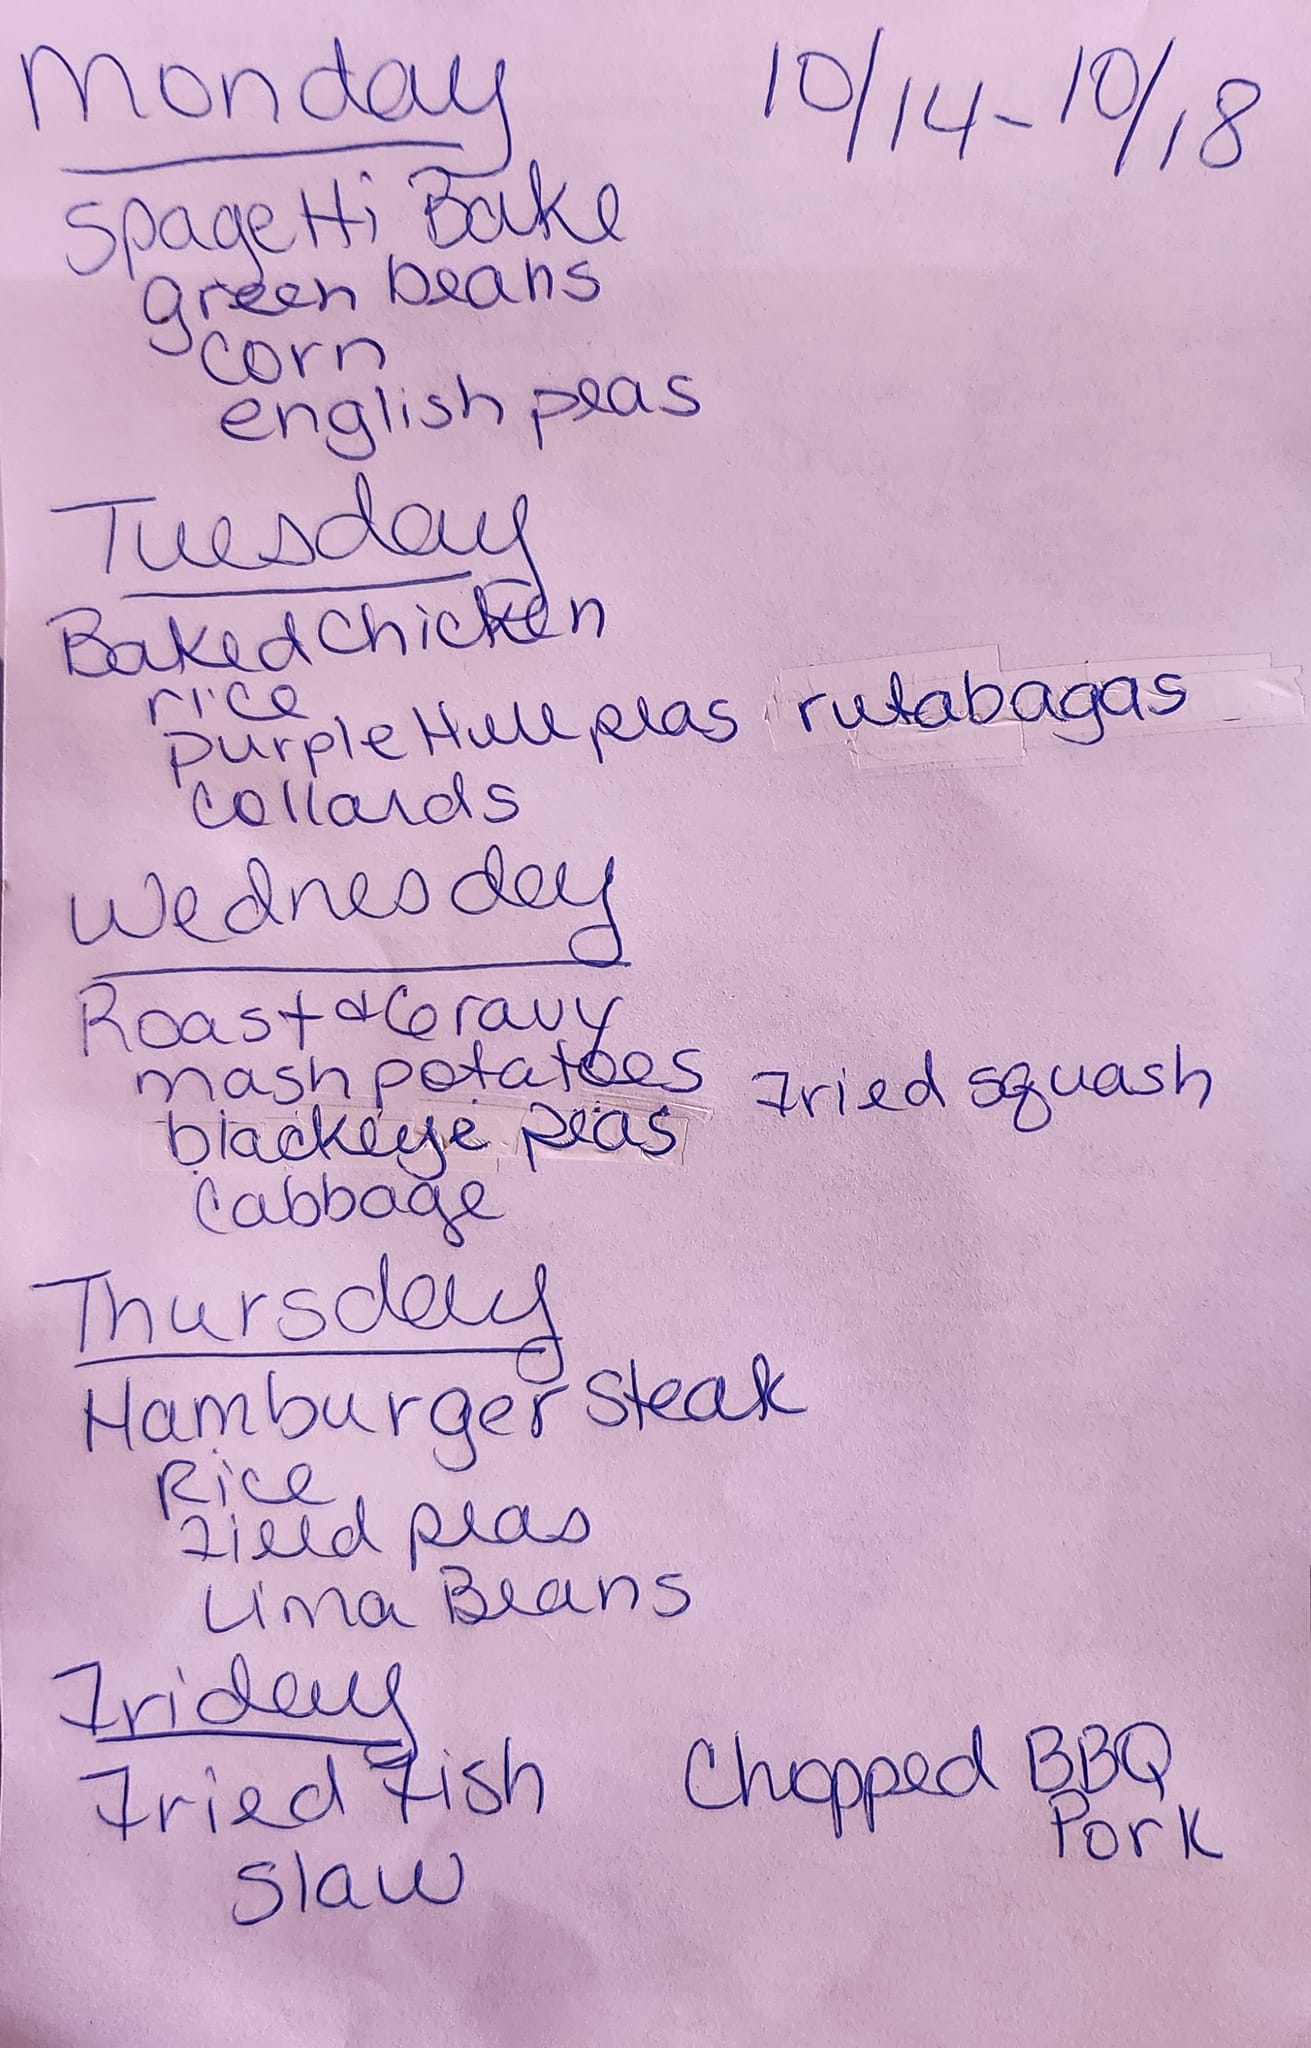 Monday 10/14-10/18
Spagetti Bake
green beans
corn
english peas
Tuesday
Baked Chicken
rice
purple Hull peas rutabagas
collards
Wednesday
Roast & Gravy
mash potatoes Fried squash
blackeye peas
Cabbage
Thursday
Hamburger Steak
Rice
Field peas
Lima Beans
Friday
Fried Fish Chopped BBQ
Pork
Slaw